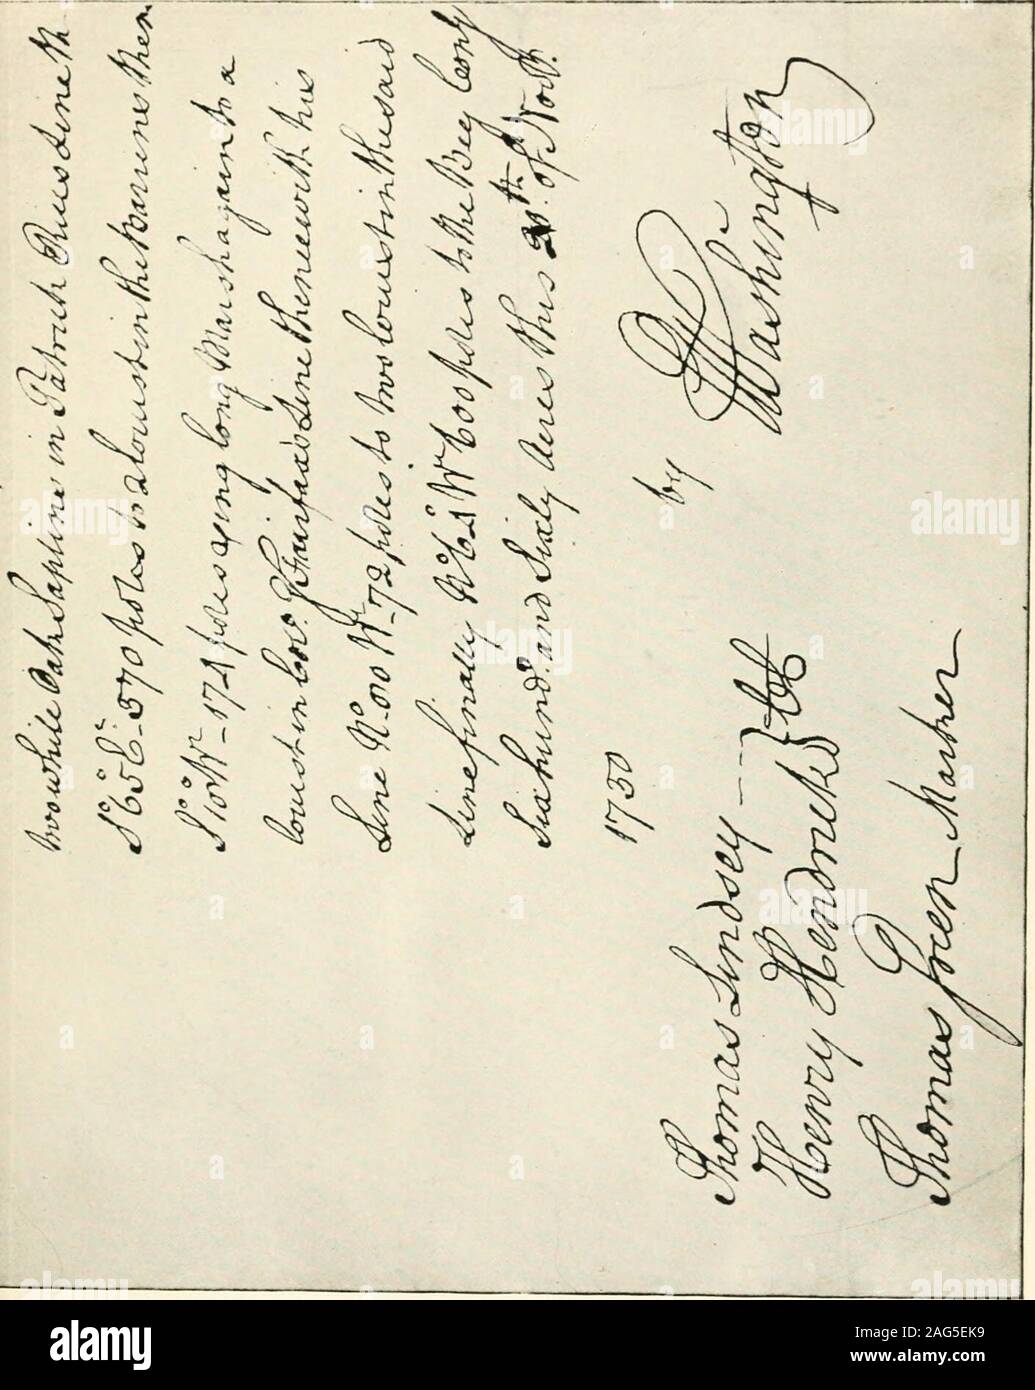 two white Oak Saplins in Patrick Rius Line th
S° 65 E.r 570 poles to a Locust in the Barrens then
S° 10 Wr - 174 poles a long Marsh again to a
Locust in Coo. G Fairfax's Line thence with his
Line N° 00 Wr - 72 poles to two Locusts in the said
Line finally N° 6 Wr 600 poles to the Beg Cong
Six hund.d and Sixty Acres this 20th of Novr.
1750
by
GWashington
Thomas Lindsey
Henry Hendricks
Thomas Green Marker
alamy
Image ID: 2AG5EK9
www.alamy.com